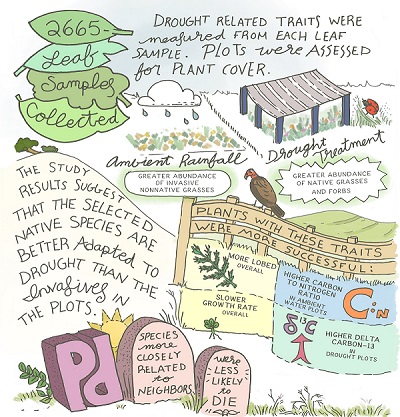 2665
Leaf
Samples
Collected
DROUGHT RELATED TRAITS WERE
measured FROM EACH LEAF
SAMPLE. PLOTS were ASSESSED
for PLANT COVER.
Ambient Rainfall
GREATER ABUNDANCE
OF INVASIVE
NONNATIVE GRASSES
Drought Treatment
GREATER ABUNDANCE
OF NATIVE GRASSES
AND FORBS
THE STUDY
RESULTS SUGGEST
THAT THE SELECTED
NATIVE SPECIES ARE
BETTER Adapted to
DROUGHT THAN THE
Invasives IN
THE PLOTS.
PLANTS WITH THESE TRAITS
WERE MORE SUCCESSFUL:
MORE LOBED
OVERALL
HIGHER CARBON
TO NITROGEN
RATIO
IN AMBIENT
WATER PLOTS
C:N
SLOWER
GROWTH RATE
OVERALL
δ13C
HIGHER DELTA
CARBON-13
IN
DROUGHT PLOTS
Pd
SPECIES
more
CLOSELY
RELATED to
NEIGHBORS
were
LESS
likely
to
DIE